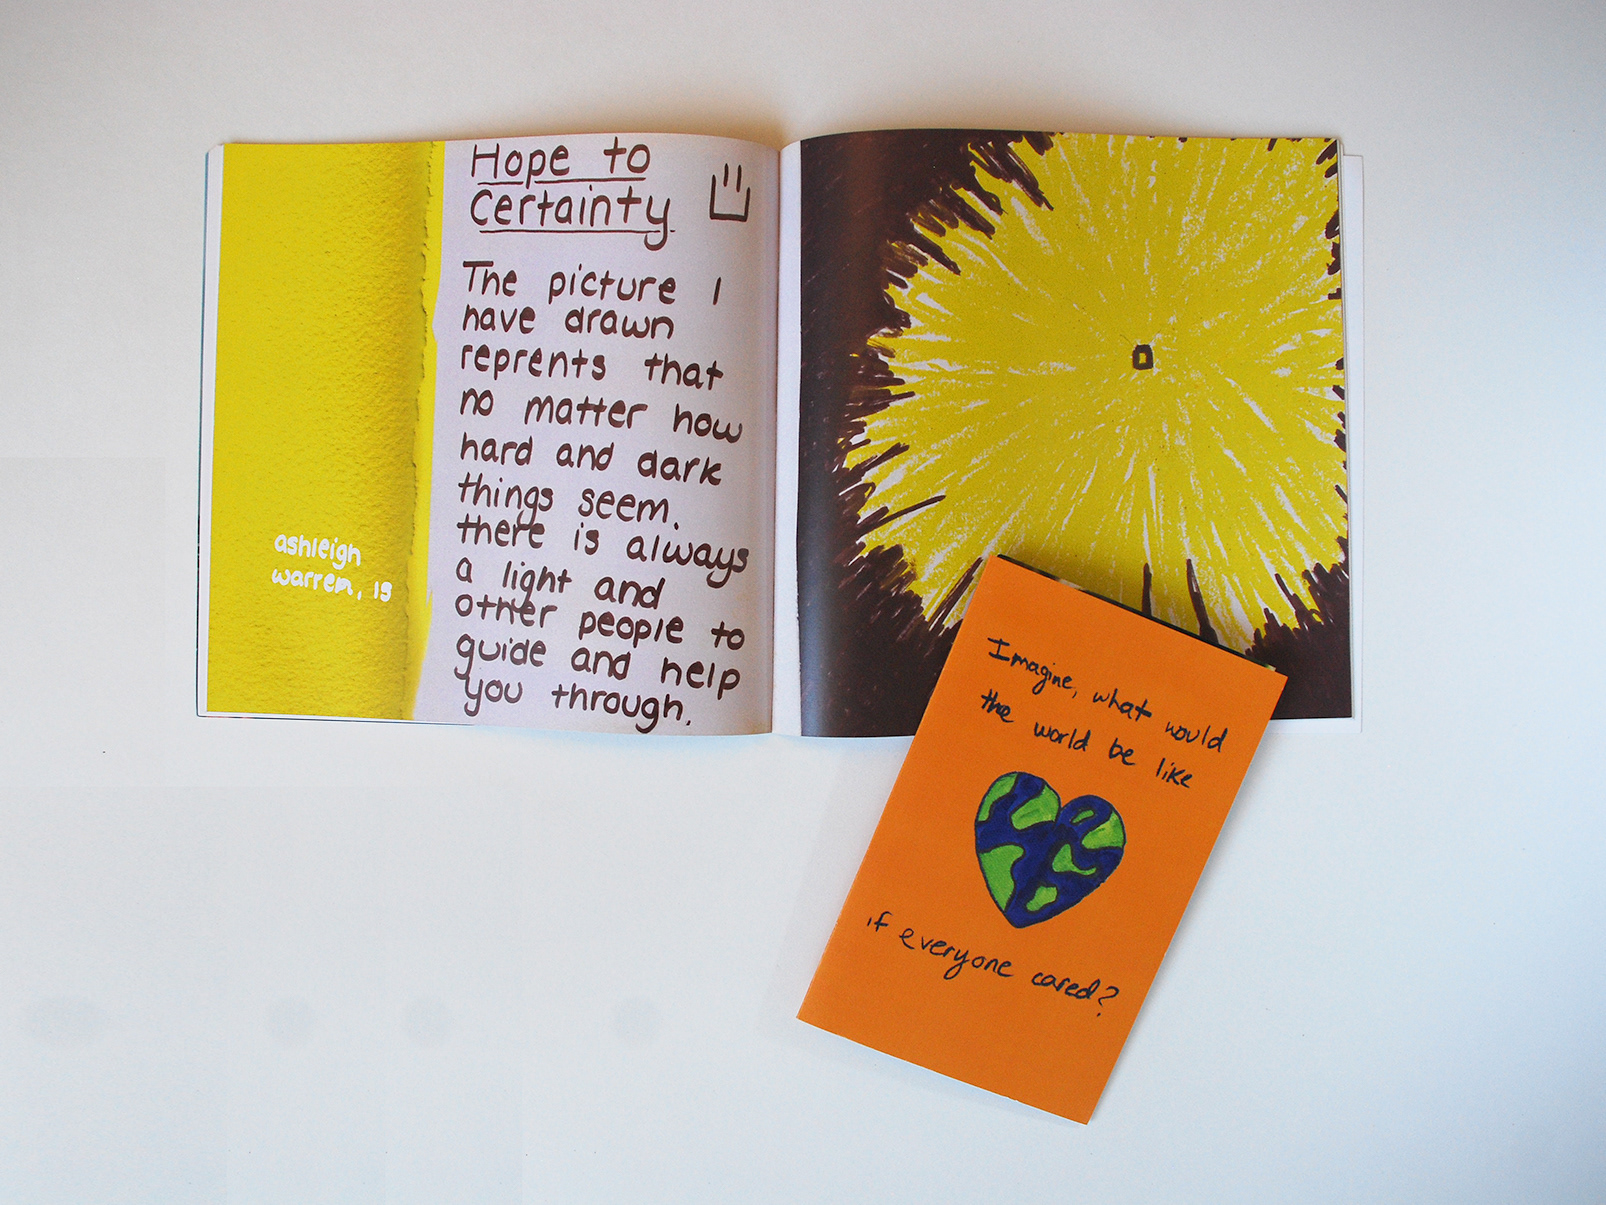 Hope to
Certainty
The picture I
have drawn
reprents that
no matter how
hard and dark
things seem.
there is always
a light and
other people to
guide and help
you through.
ashleigh
warren, 15
Imagine, what would
the world be like
if everyone cared?